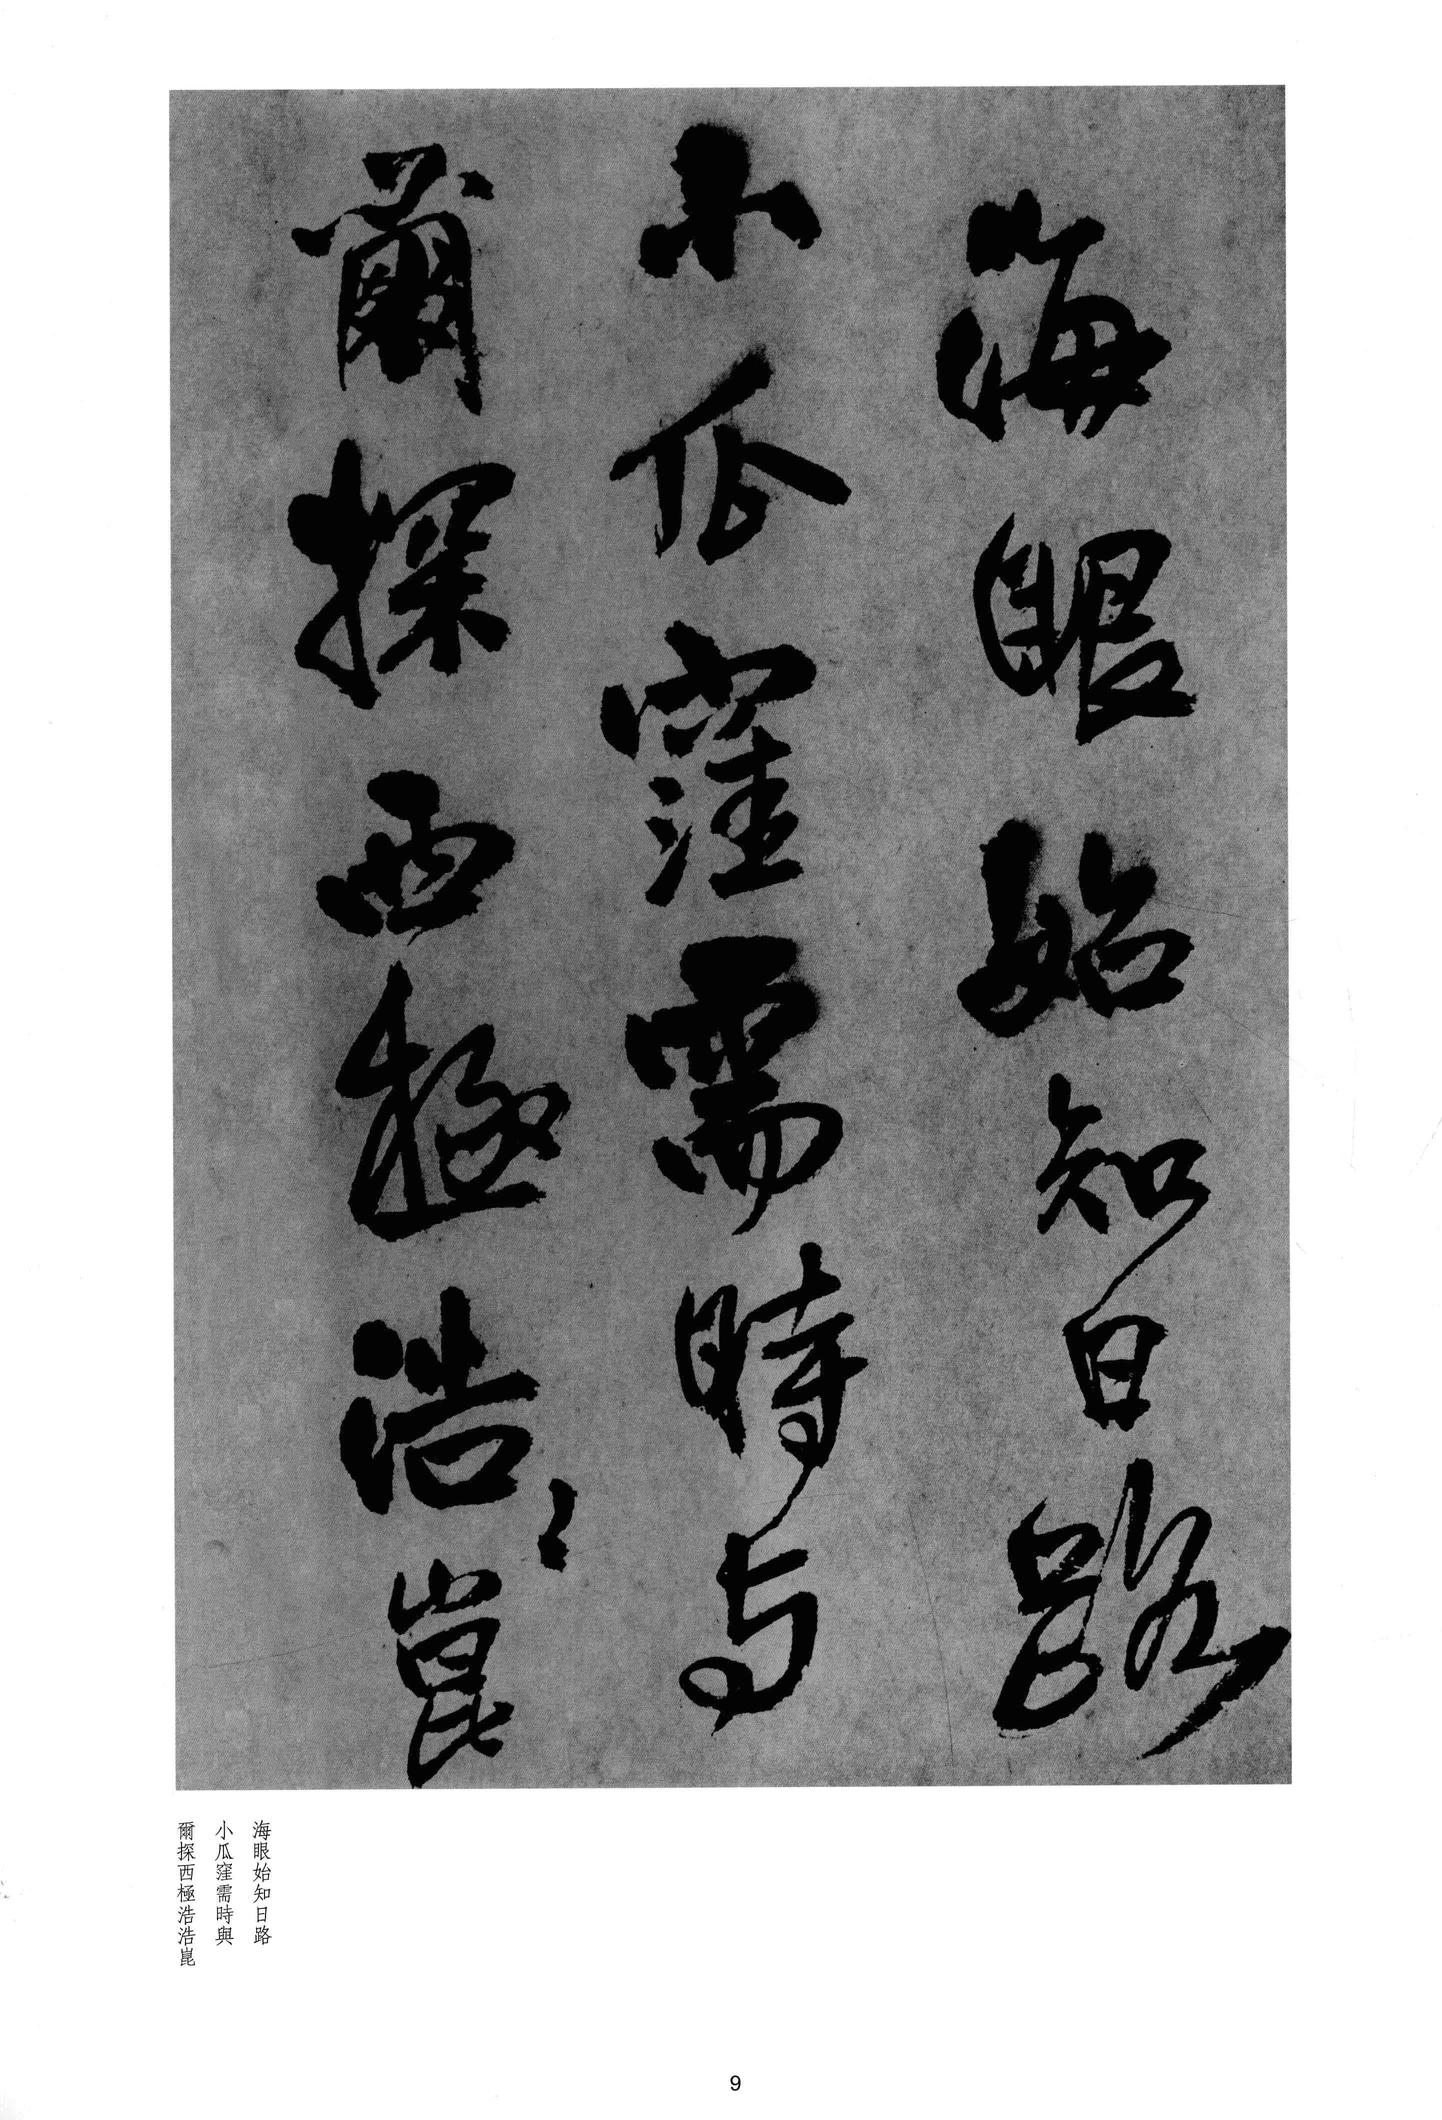 海眼始知日路
小瓜窪需時与
爾探西極浩〻崑
海眼始知日路
小瓜窪需時與
爾探西極浩浩崑
9